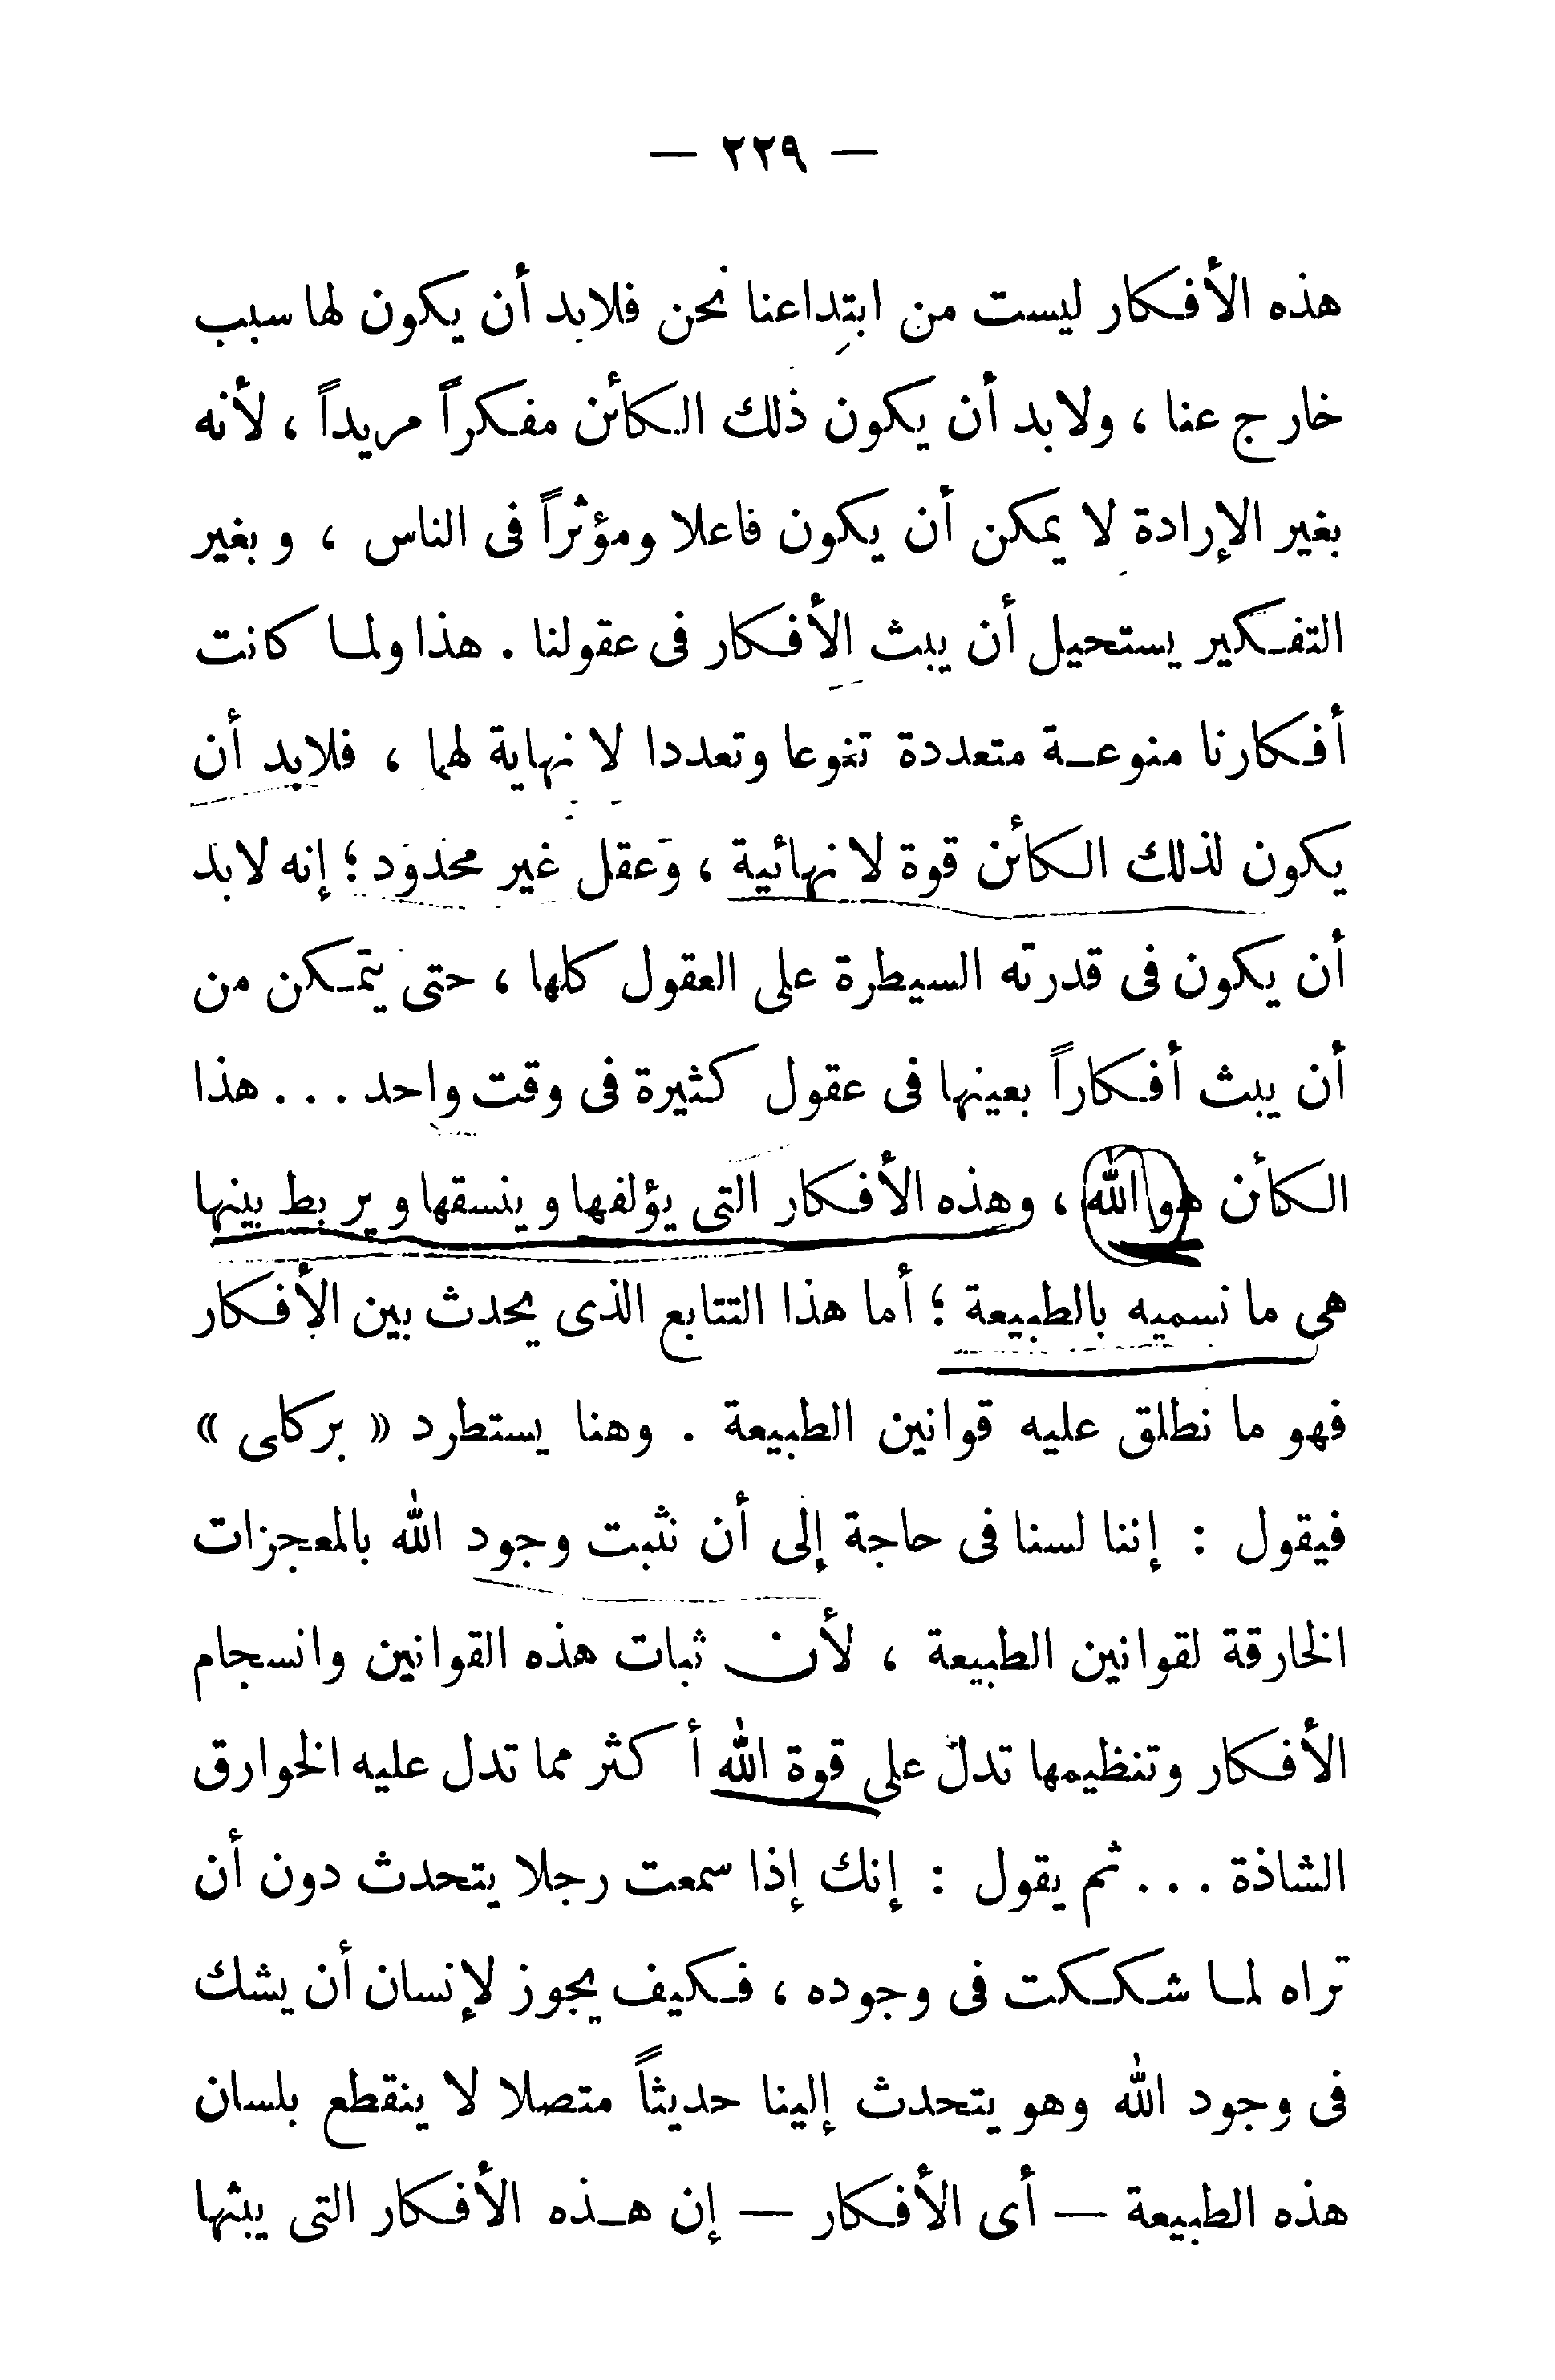 — ٢٢٩ —
هذه الأفكار ليست من ابتداعنا نحن فلابد أن يكون لها سبب
خارج عنا ، ولا بد أن يكون ذلك الكائن مفكراً مريداً ، لأنه
بغير الإرادة لا يمكن أن يكون فاعلا ومؤثراً فى الناس ، وبغير
التفكير يستحيل أن يبث الأفكار فى عقولنا . هذا ولما كانت
أفكارنا منوعة متعددة تنوعا وتعددا لا نهاية لهما ، فلابد أن
يكون لذلك الكائن قوة لا نهائية ، وعقل غير محدود ؛ إنه لابد
أن يكون فى قدرته السيطرة على العقول كلها ، حتى يتمكن من
أن يبث أفكاراً بعينها فى عقول كثيرة فى وقت واحد ... هذا
الكائن هو الله ، وهذه الأفكار التى يؤلفها وينسقها ويربط بينها
هى ما نسميه بالطبيعة ؛ أما هذا التتابع الذى يحدث بين الأفكار
فهو ما نطلق عليه قوانين الطبيعة . وهنا يستطرد « بركلى »
فيقول : إننا لسنا فى حاجة إلى أن نثبت وجود الله بالمعجزات
الخارقة لقوانين الطبيعة ، لأن ثبات هذه القوانين وانسجام
الأفكار وتنظيمها تدل على قوة الله أكثر مما تدل عليه الخوارق
الشاذة ... ثم يقول : إنك إذا سمعت رجلا يتحدث دون أن
تراه لما شككت فى وجوده ، فكيف يجوز لإنسان أن يشك
فى وجود الله وهو يتحدث إلينا حديثاً متصلا لا ينقطع بلسان
هذه الطبيعة — أى الأفكار — إن هذه الأفكار التى يبثها